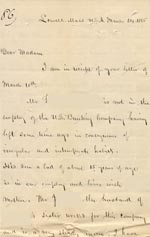 Lowell Mass
Dear Madam
I am in receipt of your letter of
March 10th.
Mr. J is not in the
employ of the U.S. Bunting Company having
left some time ago in consequence of
irregular and intemperate habits.
He has a lad of about 15 years of age
is in our employ and living with
Mother. Mr. J the husband of
works for this Company
and is a very steady